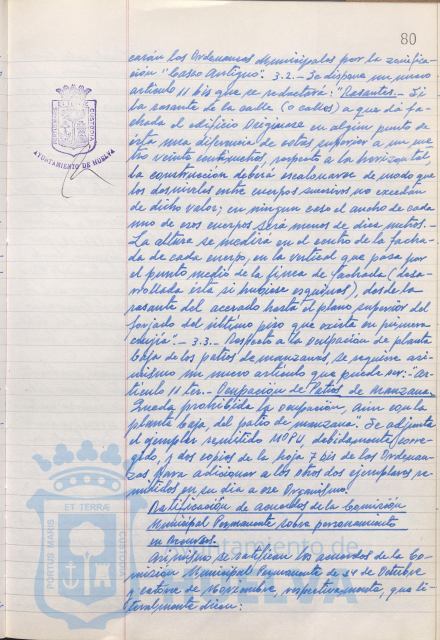 80
carán las Ordenanzas Municipales por la zonifica-
ción "Casco Antiguo". 3.2.- Se dispone un nuevo
artículo 11 bis que se redactará: "Rasantes.- Si
la rasante de la calle (o calles) a que dá fa-
chada el edificio originare en algún punto de
ésta una diferencia de cotas superior a un me-
tro veinte centímetros, respecto a la horizontal,
la construcción deberá escalonarse de modo que
los desniveles entre cuerpos sucesivos no excedan
de dicho valor; en ningún caso el ancho de cada
uno de esos cuerpos será menos de diez metros.-
La altura se medirá en el centro de la facha-
da de cada cuerpo, en la vertical que pasa por
el punto medio de la línea de fachada (desa-
rrollada ésta si hubiese esquinas), desde la
rasante del acerado hasta el plano superior del
forjado del último piso que exista en primera
crujía".- 3.3.- Respecto a la ocupación de planta
baja de los patios de manzanas, se requiere asi-
mismo un nuevo artículo que puede ser: "Ar-
tículo 11 ter.- Ocupación de Patios de manzana.
Queda prohibida la ocupación, aún con la
planta baja, del patio de manzana". Se adjunta
el ejemplar remitido MOPU, debidamente corre-
gido, y dos copias de la hoja 7 bis de las Ordenan-
zas para adicionar a los otros dos ejemplares re-
mitidos en su día a ese Organismo.
Ratificación de acuerdos de la Comisión
Municipal Permanente sobre personamiento
en recursos.
Asimismo se ratifican los acuerdos de la Co-
misión Municipal Permanente de 24 de Octubre
y catorce de Noviembre, respectivamente, que li-
teralmente dicen:
AYUNTAMIENTO DE HUELVA
PORTUS MARIS
ET TERRÆ
CUSTODIA
Ayuntamiento de
HUELVA